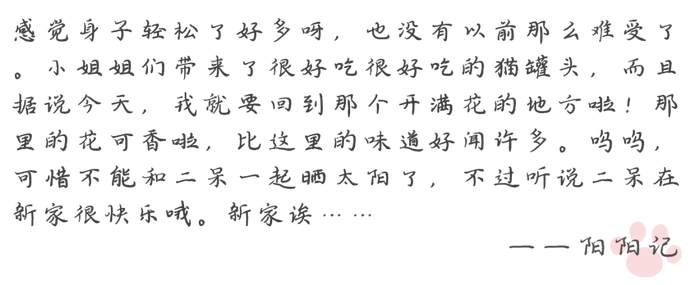 感觉身子轻松了好多呀，也没有以前那么难受了
。小姐姐们带来了很好吃很好吃的猫罐头，而且
据说今天，我就要回到那个开满花的地方啦！那
里的花可香啦，比这里的味道好闻许多。呜呜，
可惜不能和二呆一起晒太阳了，不过听说二呆在
新家很快乐哦。新家诶……
——阳阳记